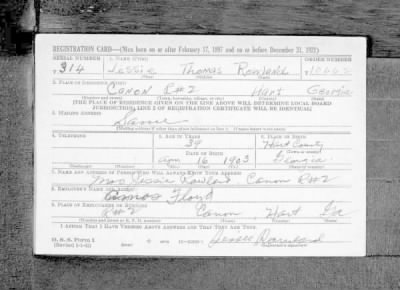 REGISTRATION CARD—(Men born on or after February 17, 1897 and on or before December 31, 1921)
SERIAL NUMBER 1. NAME (Print) ORDER NUMBER
T 314 Jessie Thomas Rowland
2. PLACE OF RESIDENCE (Print)
Canon R#2 Hart Georgia
(Number and street) (Town, township, village, or city) (County) (State)
[THE PLACE OF RESIDENCE GIVEN ON THE LINE ABOVE WILL DETERMINE LOCAL BOARD
JURISDICTION; LINE 2 OF REGISTRATION CERTIFICATE WILL BE IDENTICAL]
3. MAILING ADDRESS
Same
[Mailing address if other than place indicated on line 2. If same insert word same]
4. TELEPHONE 5. AGE IN YEARS 6. PLACE OF BIRTH
39 Hart County
DATE OF BIRTH (Town or county)
Apr 16 1903 Georgia
(Exchange) (Number) (Mo.) (Day) (Yr.) (State or country)
7. NAME AND ADDRESS OF PERSON WHO WILL ALWAYS KNOW YOUR ADDRESS
Mrs Jessie Rowland, Canon R#2
8. EMPLOYER'S NAME AND ADDRESS
9. PLACE OF EMPLOYMENT OR BUSINESS
R#2 Canon, Hart Ga
(Number and street or R. F. D. number) (Town) (County) (State)
I AFFIRM THAT I HAVE VERIFIED ABOVE ANSWERS AND THAT THEY ARE TRUE.
D. S. S. Form 1
(Registrant's signature)